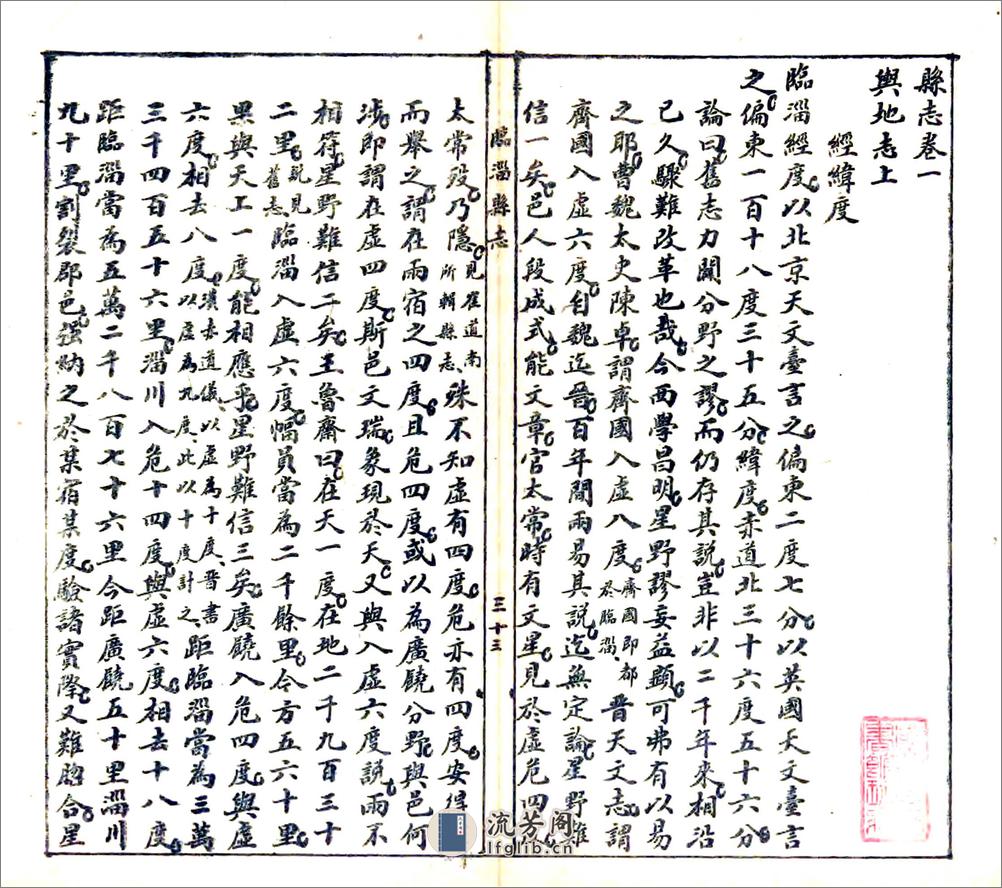 縣志卷一
輿地志上
經緯度
臨淄經度以北京天文臺言之偏東二度七分以英國天文臺言
之偏東一百十八度三十五分緯度赤道北三十六度五十六分
論曰舊志力闢分野之謬而仍存其說豈非以二千年來相沿
已久驟難改革也哉今西學昌明星野謬妄益顯可弗有以易
之耶曹魏太史陳卓謂齊國入虛八度齊國即都於臨淄晉天文志謂
齊國入虛六度自魏迄晉百年間兩易其說迄無定論星野難
信一矣邑人段成式能文章官太常時有文星見於虛危四度
臨淄縣志
三十三
太常歿乃隱見崔道南所輯縣志殊不知虛有四度危亦有四度安得
而舉之謂在兩宿之四度且危四度或以為廣饒分野與邑何
涉即謂在虛四度斯邑文瑞象現於天又與入虛六度說兩不
相符星野難信二矣王魯齋曰在天一度在地二千九百三十
二里說見舊志臨淄入虛六度幅員當為二千餘里今方五六十里
果與天工一度能相應乎星野難信三矣廣饒入危四度與虛
六度相去八度漢赤道儀以虛為十度晉書以虛為九度此以十度計之距臨淄當為三萬
三千四百五十六里淄川入危十四度與虛六度相去十八度
距臨淄當為五萬二千八百七十六里今距廣饒五十里淄川
九十里割裂郡邑強納之於某宿某度驗諸實際又難脗合星
流芳阁
lfglib.cn